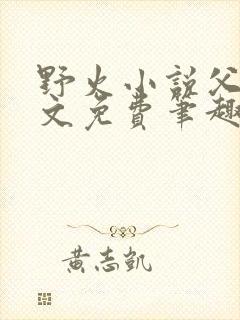 野火小说父
文免费笔趣
黄志凯